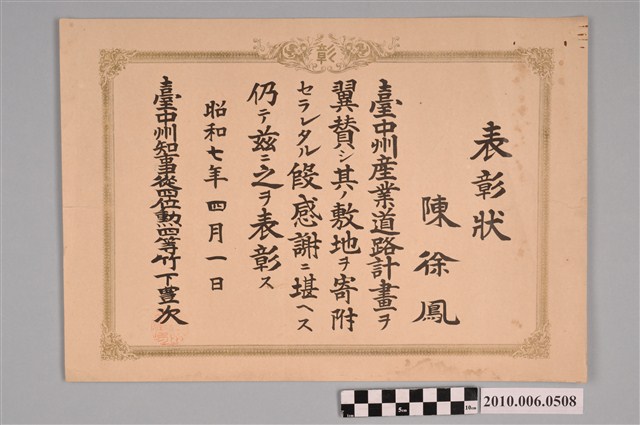 彰
表彰狀
陳徐鳳
臺中州産業道路計畫ヲ
翼賛シ其ノ敷地ヲ寄附
セラレタル段感謝ニ堪ヘス
仍テ茲ニ之ヲ表彰ス
昭和七年四月一日
臺中州知事從四位勲四等竹下豊次
5cm
10cm
2010.006.0508